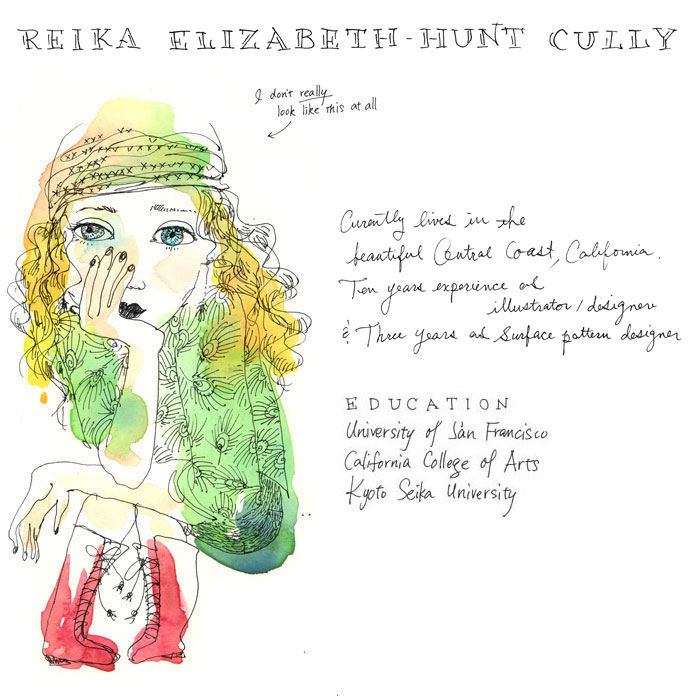 REIKA ELIZABETH-HUNT CULLY
I don't really
look like this at all
Curently lives in the
beautiful Central Coast, California.
Ten years experience as
illustrator/designer
& Three years as Surface pattern designer
EDUCATION
University of San Francisco
California College of Arts
Kyoto Seika University